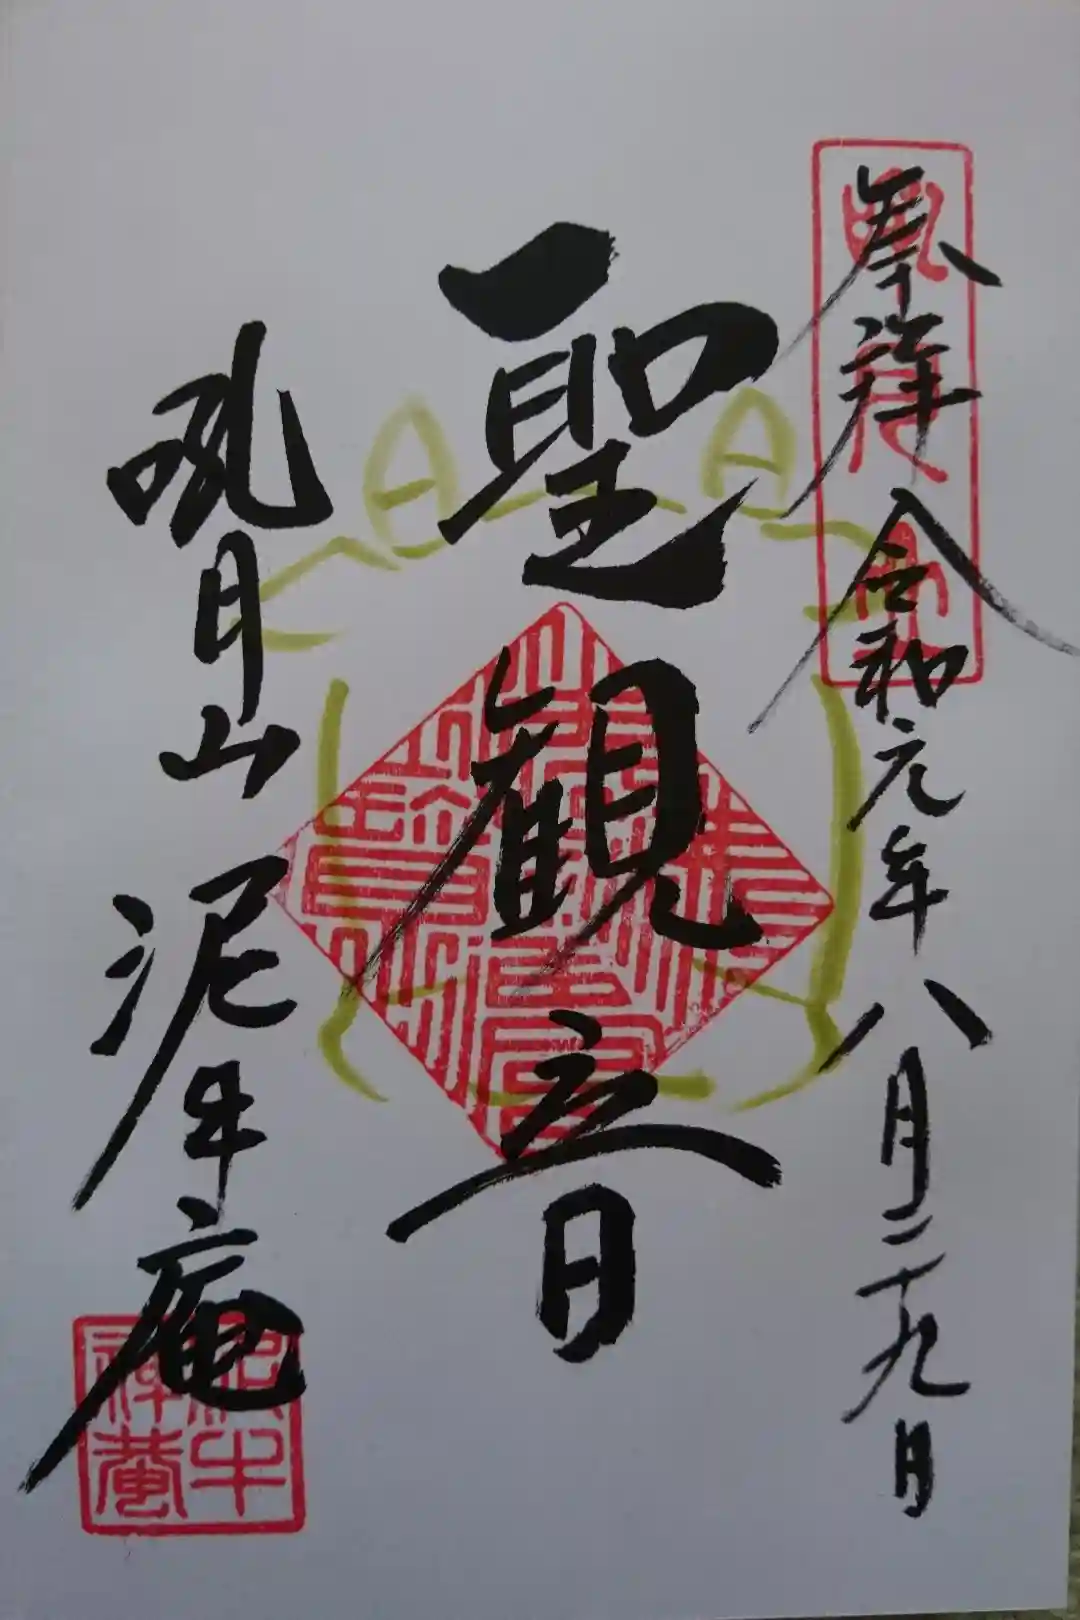 奉拝 令和元年八月二十九日
聖観音
吼月山 泥牛庵
泥牛禅菴